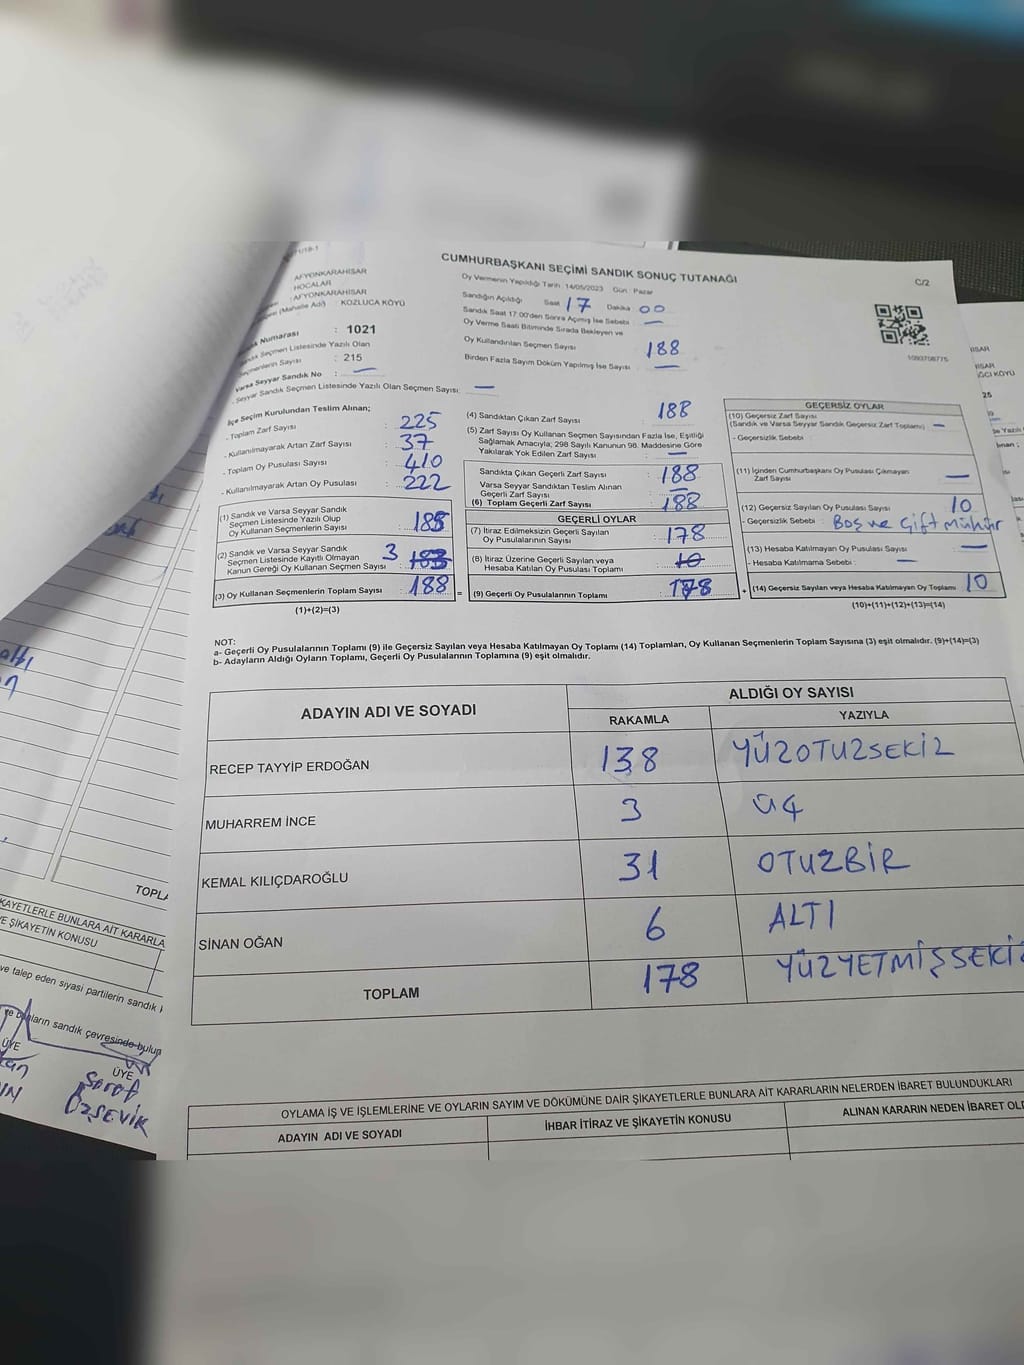 CUMHURBAŞKANI SEÇİMİ SANDIK SONUÇ TUTANAĞI
C/2
AFYONKARAHİSAR
HOCALAR
AFYONKARAHİSAR
(Mahalle Adı) : KOZLUCA KÖYÜ
Numarası : 1021
Seçmen Listesinde Yazılı Olan
Seçmenlerin Sayısı : 215
Varsa Seyyar Sandık No : —
- Seyyar Sandık Seçmen Listesinde Yazılı Olan Seçmen Sayısı: —
Oy Vermenin Yapıldığı Tarih 14/05/2023 Gün : Pazar
Sandığın Açıldığı Saat 17 Dakika 00
Sandık Saat 17.00'den Sonra Açılmış İse Sebebi : —
Oy Verme Saati Bitiminde Sırada Bekleyen ve
Oy Kullandırılan Seçmen Sayısı 188
Birden Fazla Sayım Döküm Yapılmış İse Sayısı : —
1093708775
İlçe Seçim Kurulundan Teslim Alınan;
- Toplam Zarf Sayısı : 225
- Kullanılmayarak Artan Zarf Sayısı : 37
- Toplam Oy Pusulası Sayısı : 410
- Kullanılmayarak Artan Oy Pusulası : 222
(1) Sandık ve Varsa Seyyar Sandık
Seçmen Listesinde Yazılı Olup
Oy Kullanan Seçmenlerin Sayısı : 185
(2) Sandık ve Varsa Seyyar Sandık
Seçmen Listesinde Kayıtlı Olmayan
Kanun Gereği Oy Kullanan Seçmen Sayısı : 3
(3) Oy Kullanan Seçmenlerin Toplam Sayısı : 188 =
(1)+(2)=(3)
(4) Sandıktan Çıkan Zarf Sayısı : 188
(5) Zarf Sayısı Oy Kullanan Seçmen Sayısından Fazla İse, Eşitliği
Sağlamak Amacıyla, 298 Sayılı Kanunun 98. Maddesine Göre
Yakılarak Yok Edilen Zarf Sayısı : —
Sandıkta Çıkan Geçerli Zarf Sayısı : 188
Varsa Seyyar Sandıktan Teslim Alınan
Geçerli Zarf Sayısı : —
(6) Toplam Geçerli Zarf Sayısı : 188
GEÇERLİ OYLAR
(7) İtiraz Edilmeksizin Geçerli Sayılan
Oy Pusulalarının Sayısı : 178
(8) İtiraz Üzerine Geçerli Sayılan veya
Hesaba Katılan Oy Pusulası Sayısı : 10
(9) Geçerli Oy Pusulalarının Toplamı : 178 +
GEÇERSİZ OYLAR
(10) Geçersiz Zarf Sayısı
(Sandık ve Varsa Seyyar Sandık Geçersiz Zarf Toplamı) : —
- Geçersizlik Sebebi :
(11) İçinden Cumhurbaşkanı Oy Pusulası Çıkmayan
Zarf Sayısı : —
(12) Geçersiz Sayılan Oy Pusulası Sayısı : 10
- Geçersizlik Sebebi : Boş ve Çift Mühür
(13) Hesaba Katılmayan Oy Pusulası Sayısı : —
- Hesaba Katılmama Sebebi : —
(14) Geçersiz Sayılan veya Hesaba Katılmayan Oy Toplamı : 10
(10)+(11)+(12)+(13)=(14)
NOT:
a- Geçerli Oy Pusulalarının Toplamı (9) ile Geçersiz Sayılan veya Hesaba Katılmayan Oy Toplamı (14) Toplamları, Oy Kullanan Seçmenlerin Toplam Sayısına (3) eşit olmalıdır. (9)+(14)=(3)
b- Adayların Aldığı Oyların Toplamı, Geçerli Oy Pusulalarının Toplamına (9) eşit olmalıdır.
ADAYIN ADI VE SOYADI
ALDIĞI OY SAYISI
RAKAMLA YAZIYLA
RECEP TAYYİP ERDOĞAN 138 YÜZOTUZSEKİZ
MUHARREM İNCE 3 ÜÇ
KEMAL KILIÇDAROĞLU 31 OTUZBİR
SİNAN OĞAN 6 ALTI
TOPLAM 178 YÜZYETMİŞSEKİZ
OYLAMA İŞ VE İŞLEMLERİNE VE OYLARIN SAYIM VE DÖKÜMÜNE DAİR ŞİKAYETLERLE BUNLARA AİT KARARLARIN NELERDEN İBARET BULUNDUKLARI
ADAYIN ADI VE SOYADI
İHBAR İTİRAZ VE ŞİKAYETİN KONUSU
ALINAN KARARIN NEDEN İBARET OLD
TOPLA
KAYETLERLE BUNLARA AİT KARARLA
VE ŞİKAYETİN KONUSU
ve talep eden siyasi partilerin sandık
ve bunların sandık çevresinde bulun
ÜYE
ÜYE
ÖZSEVİK